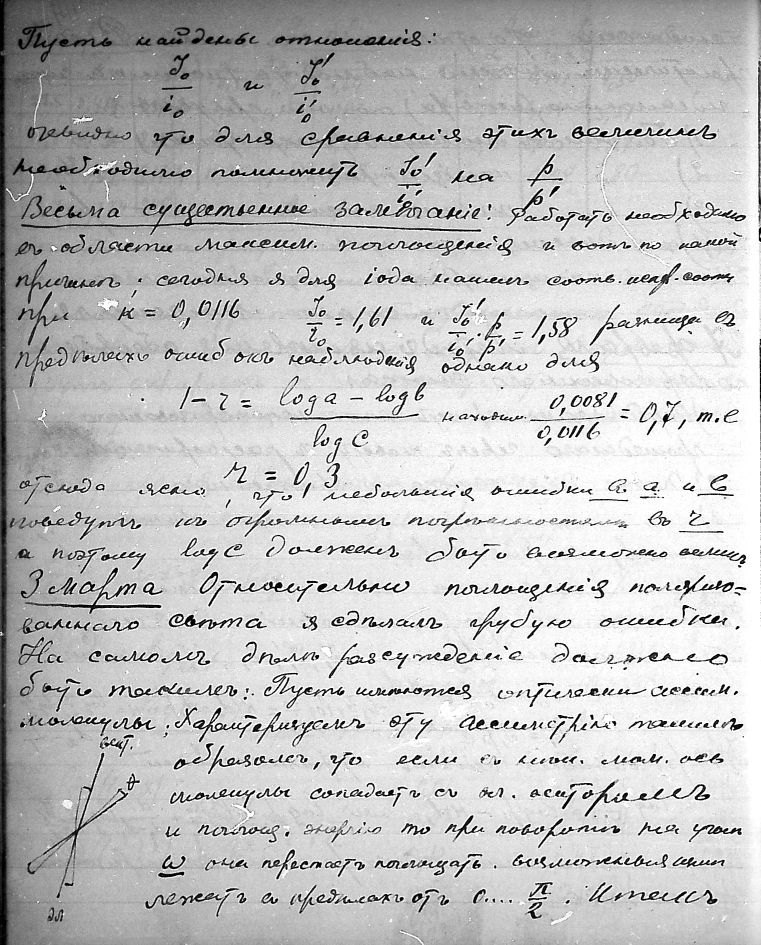 Пусть найдены отношенія:
J₀/i₀ и J₀'/i₀'
очевидно что для сравненія этихъ величинъ
необходимо помножить J₀'/i₀' на p/p'
Весьма существенное замѣчаніе: работать необходимо
въ области максим. поглощенія и вотъ по какой
причинѣ: сегодня я для іода нашелъ соотв.
при к = 0,0116 J₀/i₀ = 1,61 и J₀'/i₀' · p/p' = 1,58 разница въ
предѣлахъ ошибокъ наблюденія однако для
1 – r = (log a – log b)/log C находим 0,0081/0,0116 = 0,7, т.е
r = 0,3
отсюда ясно, что небольшія ошибки въ a и b
поведутъ къ огромнымъ погрѣшностямъ въ r
а поэтому log C долженъ быть возможно великъ
3 марта Относительно поглощенія поляризо=
ваннаго свѣта я сдѣлалъ грубую ошибку.
На самомъ дѣлѣ разсужденіе должно
быть такимъ: Пусть имѣются оптически ассим.
молекулы. Характеризуемъ эту ассиметрію такимъ
образомъ, что если въ нѣк. мом. ось
молекулы сопадаетъ съ эл. векторомъ
и поглощ. энергію то при поворотѣ на уголъ
ω она перестаетъ поглощать. возможныя
лежатъ въ предѣлахъ отъ 0.... π/2.
вект.
эл